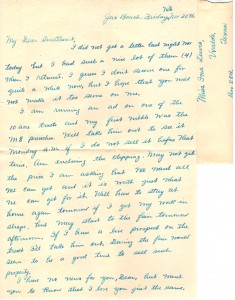 My Dear Sweetheart,
I did not get a letter last night nor
today but I had such a nice lot of them (4)
when I returned. I guess I don't deserve one for
quite a while now, but I hope that you will
not make it too long on me.
I am running an ad on one of the
10 acre tracts and my first nibble was the
Will take him out to see it
Monday a.m. if I do not sell it before that
time. Am enclosing the clipping. May not get
the price I am asking but we need all
we can get and it is worth just what
we can get for it. Will have to stay at
home again tomorrow if I get my work in
shape, but may start to the farm tomorrow
afternoon. If I have a live prospect on the
tract I'll take him out. During the fair would
seem to be a good time to sell such
property.
I have no news for you, Dear, but want
you to know that I love you just the same,
Miss